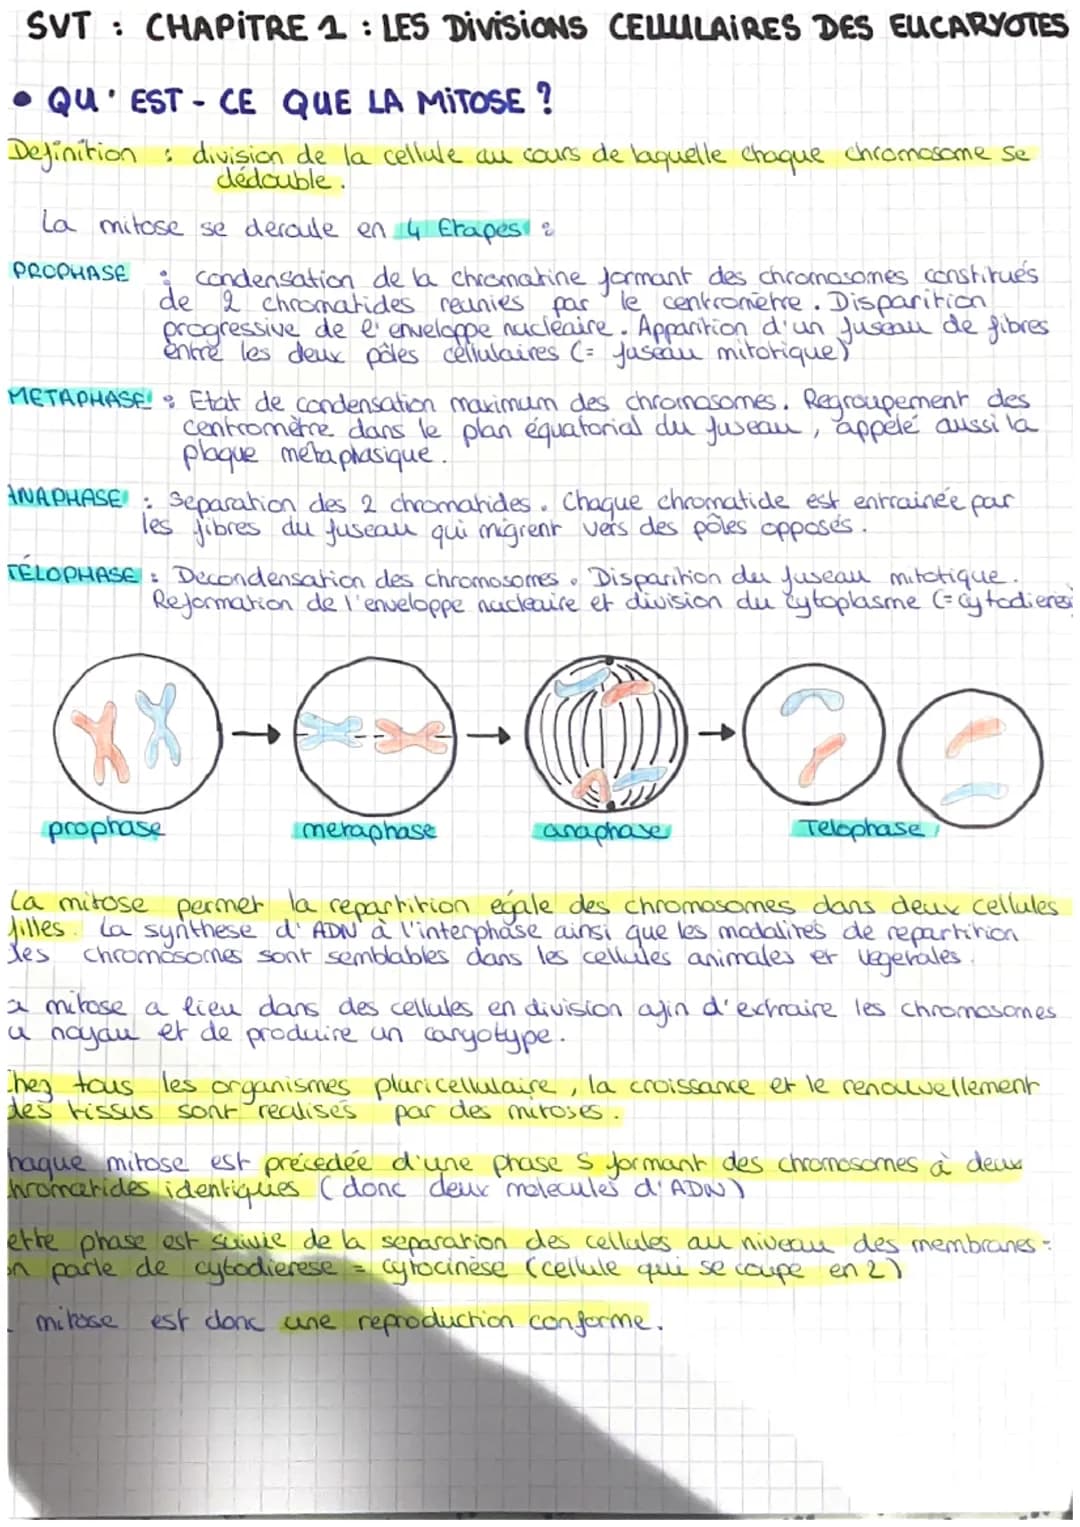 SVT : CHAPITRE 1 : LES DIVISIONS CELLULAIRES DES EUCARYOTES
• QU'EST-CE QUE LA MITOSE ?
Definition : division de la cellule au cours de laquelle chaque chromosome se
dédouble.
La mitose se deroule en 4 Etapes :
PROPHASE : condensation de la chromatine formant des chromosomes constitués
de 2 chromatides reunies par le centromètre. Disparition
progressive de l'enveloppe nucléaire. Apparition d'un fuseau de fibres
entre les deux pôles cellulaires (= fuseau mitotique)
METAPHASE : Etat de condensation maximum des chromosomes. Regroupement des
centromètre dans le plan équatorial du fuseau, appelé aussi la
plaque métaphasique.
ANAPHASE : Separation des 2 chromatides. Chaque chromatide est entrainée par
les fibres du fuseau qui migrent vers des pôles opposés.
TÉLOPHASE : Decondensation des chromosomes. Disparition du fuseau mitotique.
Reformation de l'enveloppe nucleaire et division du cytoplasme (=cytodieres
prophase
metaphase
anaphase
Telophase
La mitose permet la repartition égale des chromosomes dans deux cellules
filles. La synthese d'ADN à l'interphase ainsi que les modalités de repartition
des chromosomes sont semblables dans les cellules animales et vegetales.
a mitose a lieu dans des cellules en division afin d'extraire les chromosomes
u noyau et de produire un caryotype.
Chez tous les organismes pluricellulaire, la croissance et le renouvellement
des tissus sont realisés par des mitoses.
haque mitose est précedée d'une phase S formant des chromosomes à deux
hromatides identiques (donc deux molecules d'ADN)
ette phase est suivie de la separation des cellules au niveau des membranes :
on parle de cytodierese = cytocinèse (cellule qui se coupe en 2)
mitose est donc une reproduction conforme.